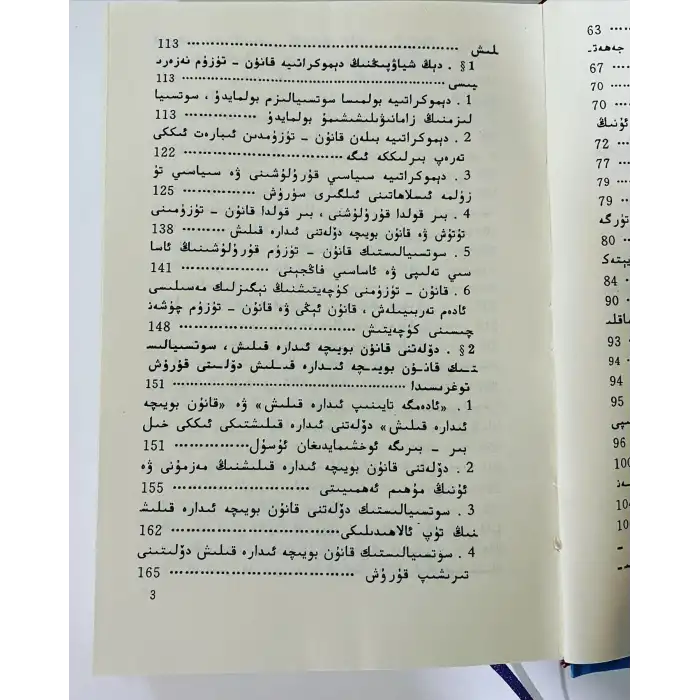 لىش ………… 113
§1 . دېڭ شياۋپىڭنىڭ دېموكراتىيە قانۇن ـ تۈزۈم نەزەرد
يىسى ………… 113
1 . دېموكراتىيە بولمىسا سوتسىيالىزم بولمايدۇ ، سوتسىيا
لىزمنىڭ زامانىۋىلىشىشىمۇ بولمايدۇ ………… 113
2 . دېموكراتىيە بىلەن قانۇن ـ تۈزۈمدىن ئىبارەت ئىككى
تەرەپ بىرلىككە ئىگە ………… 122
3 . دېموكراتىيە سىياسىي قۇرۇلۇشىنى ۋە سىياسىي تۈ
زۈلمە ئىسلاھاتىنى ئىلگىرى سۈرۈش ………… 125
4 . بىر قولدا قۇرۇلۇشنى ، بىر قولدا قانۇن ـ تۈزۈمىنى
تۇتۇش ۋە قانۇن بويىچە دۆلەتنى ئىدارە قىلىش ………… 138
5 . سوتسىيالىستىك قانۇن ـ تۈزۈم قۇرۇلۇشىنىڭ ئاسا
سىي تەلىپى ۋە ئاساسىي فاڭجېنى ………… 141
6 . قانۇن ـ تۈزۈمنى كۈچەيتىشنىڭ نېگىزلىك مەسىلىسى
ئادەم تەربىيىلەش ، قانۇن ئېڭى ۋە قانۇن ـ تۈزۈم چۈشەنـ
چىسىنى كۈچەيتىش ………… 148
§2 . دۆلەتنى قانۇن بويىچە ئىدارە قىلىش ، سوتسىيالىسـ
تىك قانۇن بويىچە ئىدارە قىلىش دۆلىتى قۇرۇش
توغرىسىدا ………… 151
1 . «ئادەمگە تايىنىپ ئىدارە قىلىش» ۋە «قانۇن بويىچە
ئىدارە قىلىش» دۆلەتنى ئىدارە قىلىشتىكى ئىككى خىل
بىر ـ بىرىگە ئوخشىمايدىغان ئۇسۇل ………… 151
2 . دۆلەتنى قانۇن بويىچە ئىدارە قىلىشنىڭ مەزمۇنى ۋە
ئۇنىڭ مۇھىم ئەھمىيىتى ………… 155
3 . سوتسىيالىستىك دۆلەتنى قانۇن بويىچە ئىدارە قىلىشـ
نىڭ تۈپ ئالاھىدىلىكى ………… 162
4 . سوتسىيالىستىك قانۇن بويىچە ئىدارە قىلىش دۆلىتىنى
تىرىشىپ قۇرۇش ………… 165
3
63
جەھەتـ
67
70
70
ئۇنىڭ
72
77
79
79
تۈرگە
80
84
90
93
94
94
95
96